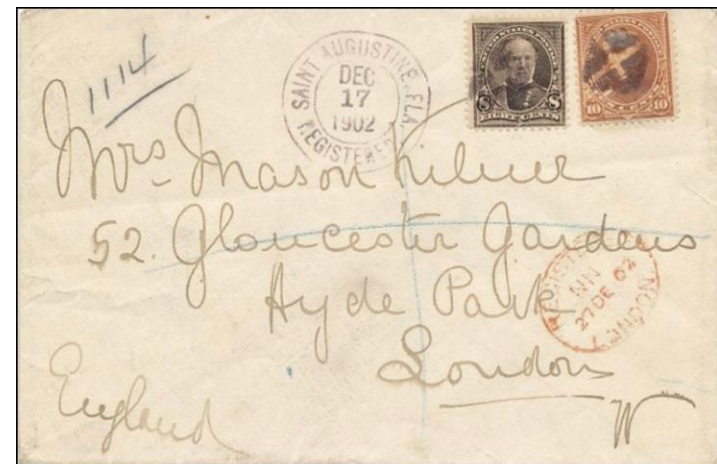 1114
SAINT AUGUSTINE, FLA.
DEC
17
1902
REGISTERED
8 8
EIGHT CENTS
10 CENTS 10
Mrs Mason
52. Gloucester Gardens
Hyde Park
London
W
England
REGISTERED
NN
27 DE 02
LONDON